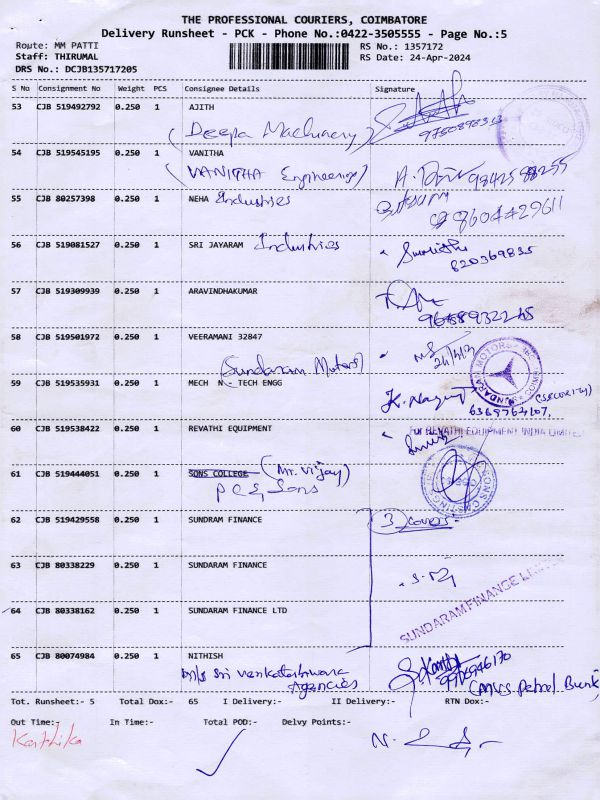 THE PROFESSIONAL COURIERS, COIMBATORE
Delivery Runsheet - PCK - Phone No.:0422-3505555 - Page No.:5
Route: MM PATTI RS No.: 1357172
Staff: THIRUMAL RS Date: 24-Apr-2024
DRS No.: DCJB135717205
S No Consignment No Weight PCS Consignee Details Signature
53 CJB 519492792 0.250 1 AJITH
(Deepa Machinery)
54 CJB 519545195 0.250 1 VANITHA
(VANITHA Engineerings)
55 CJB 80257398 0.250 1 NEHA Industries
9604429611
56 CJB 519081527 0.250 1 SRI JAYARAM Industries
820369835
57 CJB 519309939 0.250 1 ARAVINDHAKUMAR
58 CJB 519501972 0.250 1 VEERAMANI 32847
(Sundaram Motors)
59 CJB 519535931 0.250 1 MECH N TECH ENGG
(SECURITY)
6369764107,
60 CJB 519538422 0.250 1 REVATHI EQUIPMENT
For REVATHI EQUIPMENT INDIA LIMITED
61 CJB 519444051 0.250 1 SONS COLLEGE (Mr. Vijay)
P C & Sons
62 CJB 519429558 0.250 1 SUNDRAM FINANCE 3 covers
63 CJB 80338229 0.250 1 SUNDARAM FINANCE
64 CJB 80338162 0.250 1 SUNDARAM FINANCE LTD
SUNDARAM FINANCE LIMITED
65 CJB 80074984 0.250 1 NITHISH
M/s Sri Venkateshwara
Agencies
Petrol Bunk
Tot. Runsheet:- 5 Total Dox:- 65 I Delivery:- II Delivery:- RTN Dox:-
Out Time:- In Time:- Total POD:- Delvy Points:-
Karthika